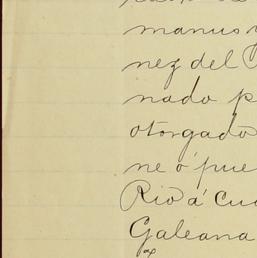 manus
nez del
nado p
otorgado
ne ó pue
Rio á Cua
Galeana